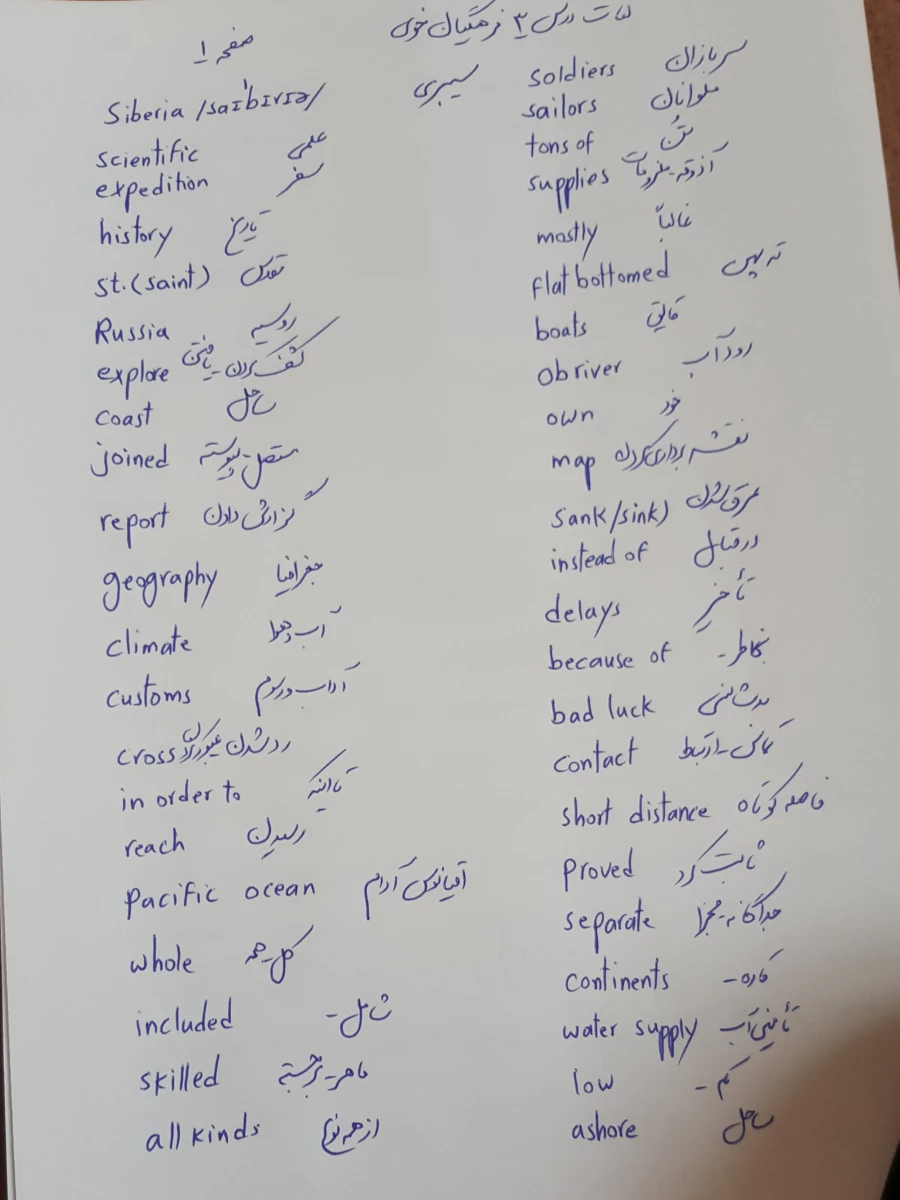 لغات درس ۳ فرهنگیان خوی
صفحه ۱
Siberia /saɪˈbɪrɪə/ سیبری
scientific علمی
expedition سفر
history تاریخ
St. (saint) تقدس
Russia روسیه
explore کشف کردن - یافتن
coast ساحل
joined متصل - پیوسته
report گزارش دادن
geography جغرافیا
climate آب و هوا
customs آداب و رسوم
cross رد شدن عبور کردن
in order to تا اینکه
reach رسیدن
Pacific ocean اقیانوس آرام
whole کل - همه
included شامل -
skilled ماهر - برجسته
all kinds از همه نوع
soldiers سربازان
sailors ملوانان
tons of تُن
supplies آذوقه - ملزومات
mostly غالباً
flat bottomed ته پهن
boats قایق
Ob river رود آب
own خود
map نقشه برداری کردن
sank/sink) غرق شدن
instead of در قبال
delays تأخیر
because of بخاطر -
bad luck بدشانسی
contact تماس - ارتباط
short distance فاصله کوتاه
proved ثابت کرد
separate جداگانه - مجزا
continents قاره -
water supply تأمین آب
low کم -
ashore ساحل